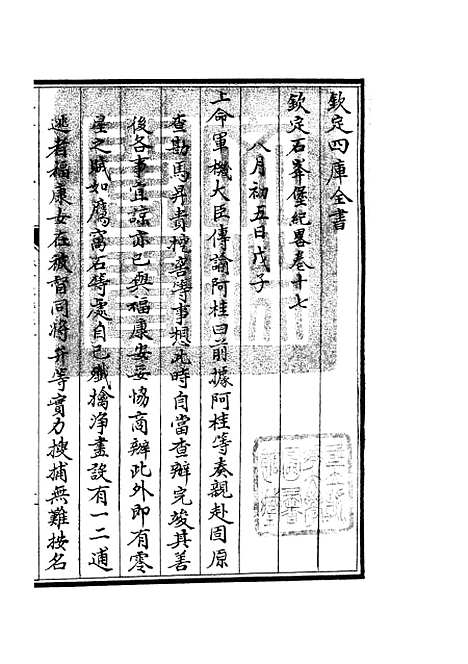 欽定四庫全書
欽定石峯堡紀畧卷十七
八月初五日戊子
上命軍機大臣傳諭阿桂曰前據阿桂等奏親赴固原
查勘馬昇貴禮等事想此時自當查辦完竣其善
後各事宜諒亦已與福康安妥協商辦此外即有零
星之賊如鷹窩石等處自己殲擒淨盡設有一二逋
逃者福康安在彼督同將弁等實力搜捕無難按名